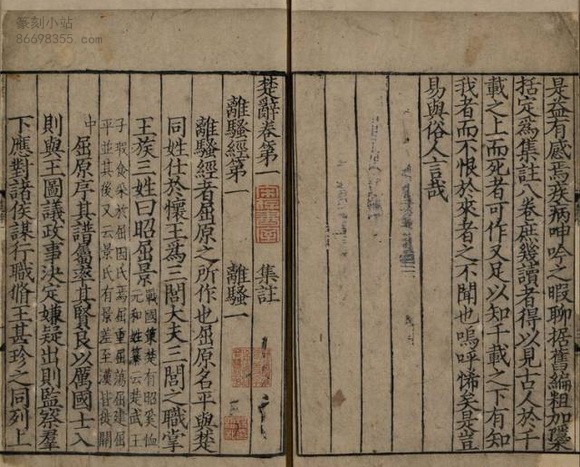 篆刻小站
86698355.com
是益有感焉疾病呻吟之暇聊据舊編粗加檃
括定爲集註八卷庶幾讀者得以見古人於千
載之上而死者可作又足以知千載之下有知
我者而不恨於來者之不聞也嗚呼悕矣是豈
易與俗人言哉
楚辭卷第一 集註
離騷經第一 離騷一
離騷經者屈原之所作也屈原名平與楚
同姓仕於懷王爲三閭大夫三閭之職掌
王族三姓曰昭屈景
戰國策楚有昭奚恤
元和姓纂云楚武王
子瑕食采於屈因氏焉屈重屈蕩屈建屈
平並其後又云景氏有景差至漢皆徙關
中
屈原序其譜屬率其賢良以厲國士入
則與王圖議政事決定嫌疑出則監察羣
下應對諸侯謀行職脩王甚珍之同列上